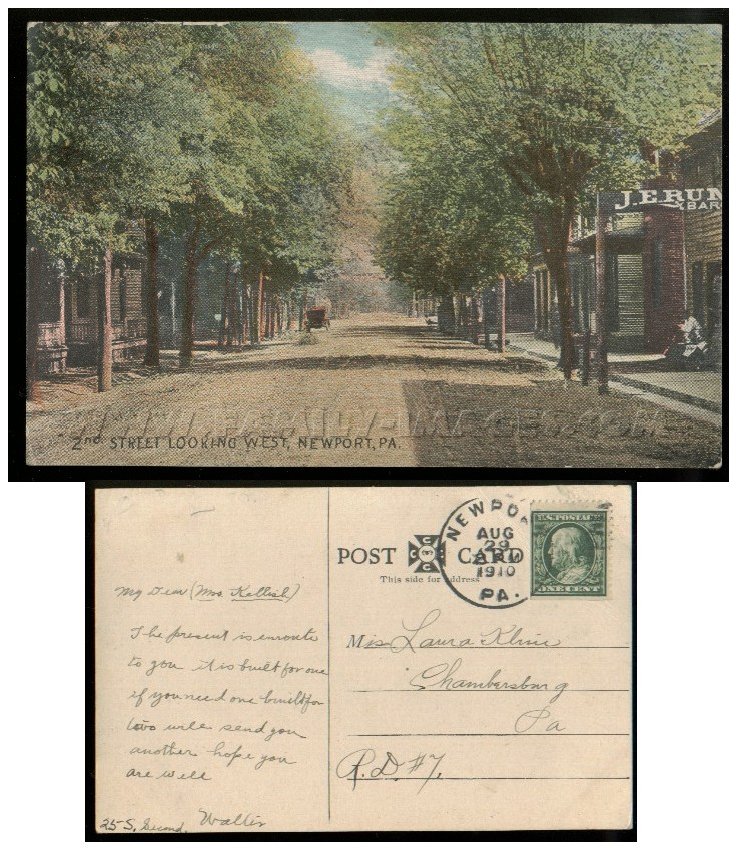 J.ERUM
BAR
WWW.FAMILY-IMAGES.COM
2nd STREET LOOKING WEST, NEWPORT, PA.
POST CARD
This side for address
NEWPO
AUG
29
1910
PA.
U.S. POSTAGE
ONE CENT
My Dear (Mrs. Kellish)
The present is enroute
to you it is built for one
if you need one built for
two will send you
another hope you
are well
Walter
25 S. Second.
Miss Laura Kline
Chambersburg
Pa
R.D. #7,